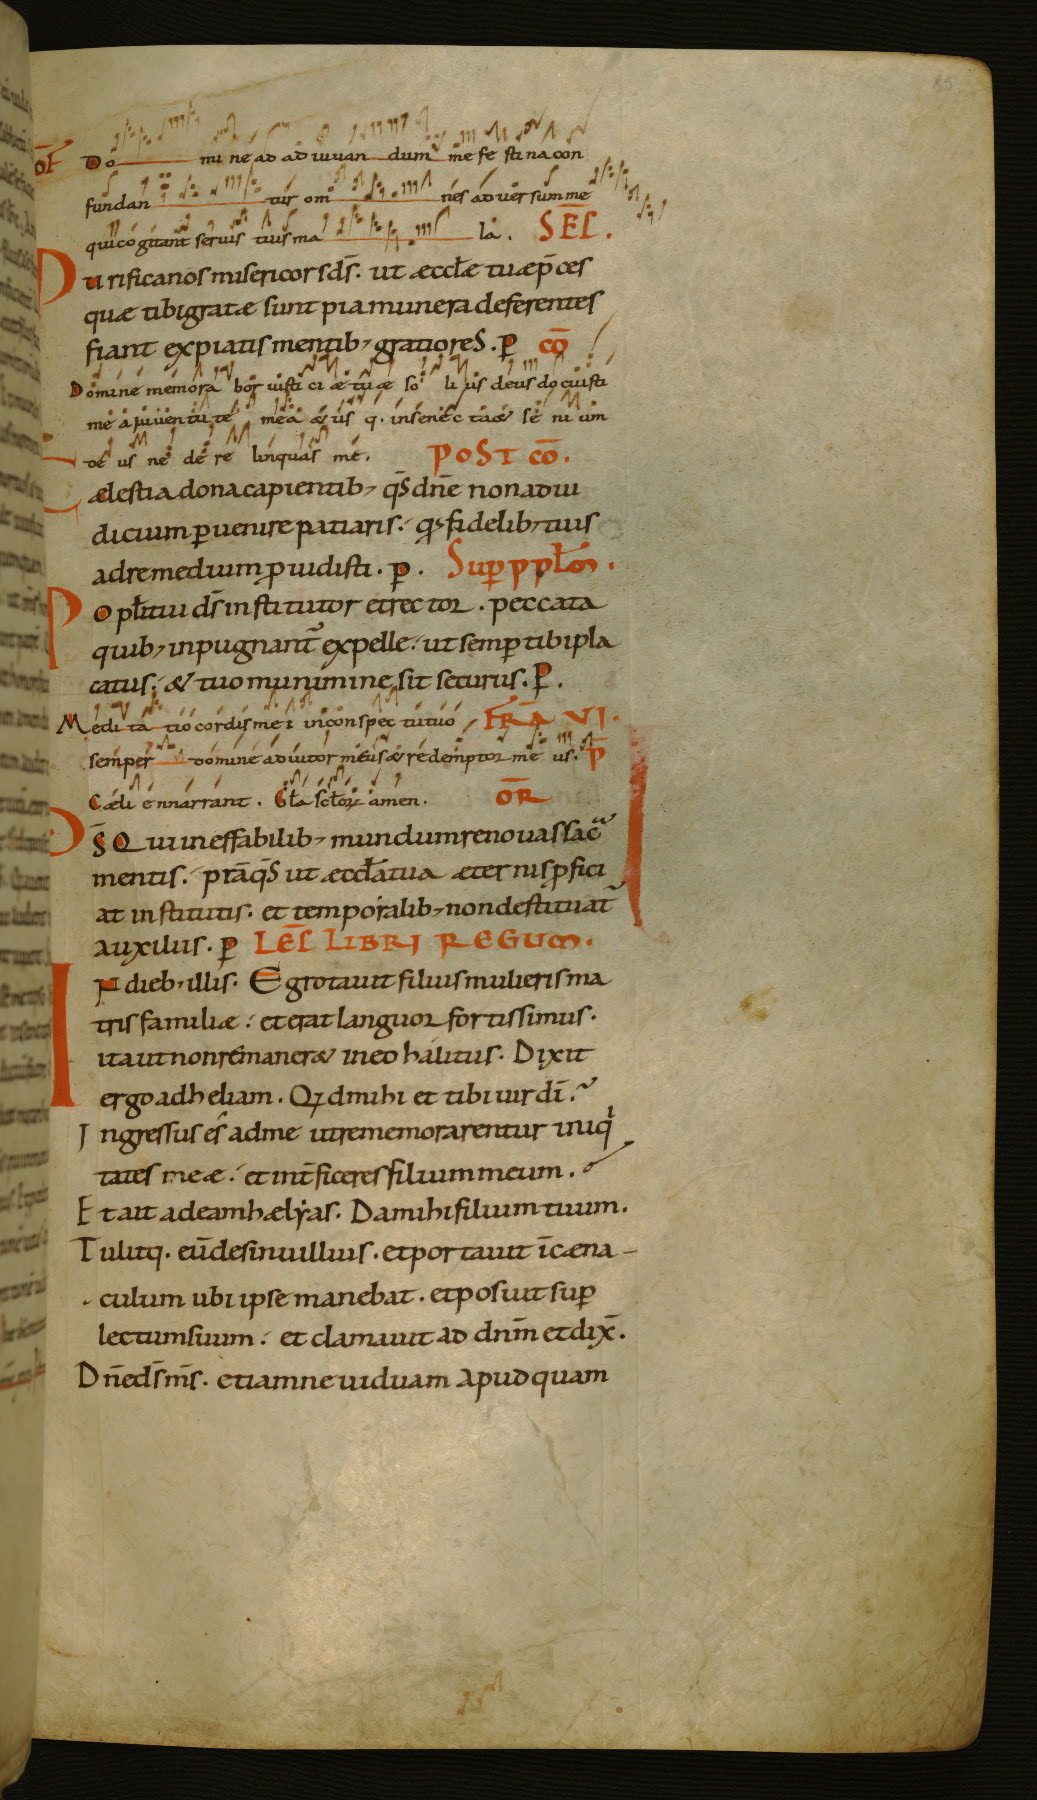 85
OF Do mi ne ad ad iuuan dum me fe sti na con
fundan tur om nes aduer sum me
qui cogitant seruis tuis ma la. SEC.
Purifica nos misericors ds̄. ut æccłæ tuæ p̄ces
quæ tibi gratæ sunt pia munera deferentes
fiant expiatis mentib; gratiores. p CŌ
Domine memora bor iusti ci æ tuæ so li us deus docuisti
me a iuuentu te mea & us q. in senec ta& se ni um
de us ne de re linquas me. POST CŌ.
Cælestia dona capientib; q̄s dn̄e non ad iu
dicium peruenire patiaris. q̄s fidelib; tuis
ad remedium prouidisti. p. Sup ppłm.
Po płi tui ds̄ institutor et rector. peccata
quib; inpugnant̄ expelle. ut semp tibi pla
catus. & tuo munimine sit securus. P.
Medi ta tio cordis mei in conspec tu tuo FRĀ VI.
semper domine adiutor meus & redemptor me us. P̄
Cæli ennarrant. Gła scłor amen. OR̄
Ds̄ Qui ineffabilib; mundum renouas sac̄
mentis. p̄ra q̄s ut æccła tua æternis pfici
at institutis. et temporalib; non destituat̄
auxiliis. p LEC LIBRI REGUM.
IN dieb; illis. Egrotauit filius mulieris ma
tris familiæ. et erat languor fortissimus.
ita ut non remaner& in eo halitus. Dixit
ergo ad heliam. Qd mihi et tibi uir dī.
Ingressus es ad me ut rememorarentur iniqi
tates meæ. et int̄ficeres filium meum.
Et ait ad eam hælyas. Da mihi filium tuum.
Tulitq. eūde sinu illius. et portauit ī cæna
culum ubi ipse manebat. et posuit sup
lectum suum. et clamauit ad dn̄m et dix̄.
Dn̄e ds̄ ms̄. etiamne uiduam apud quam